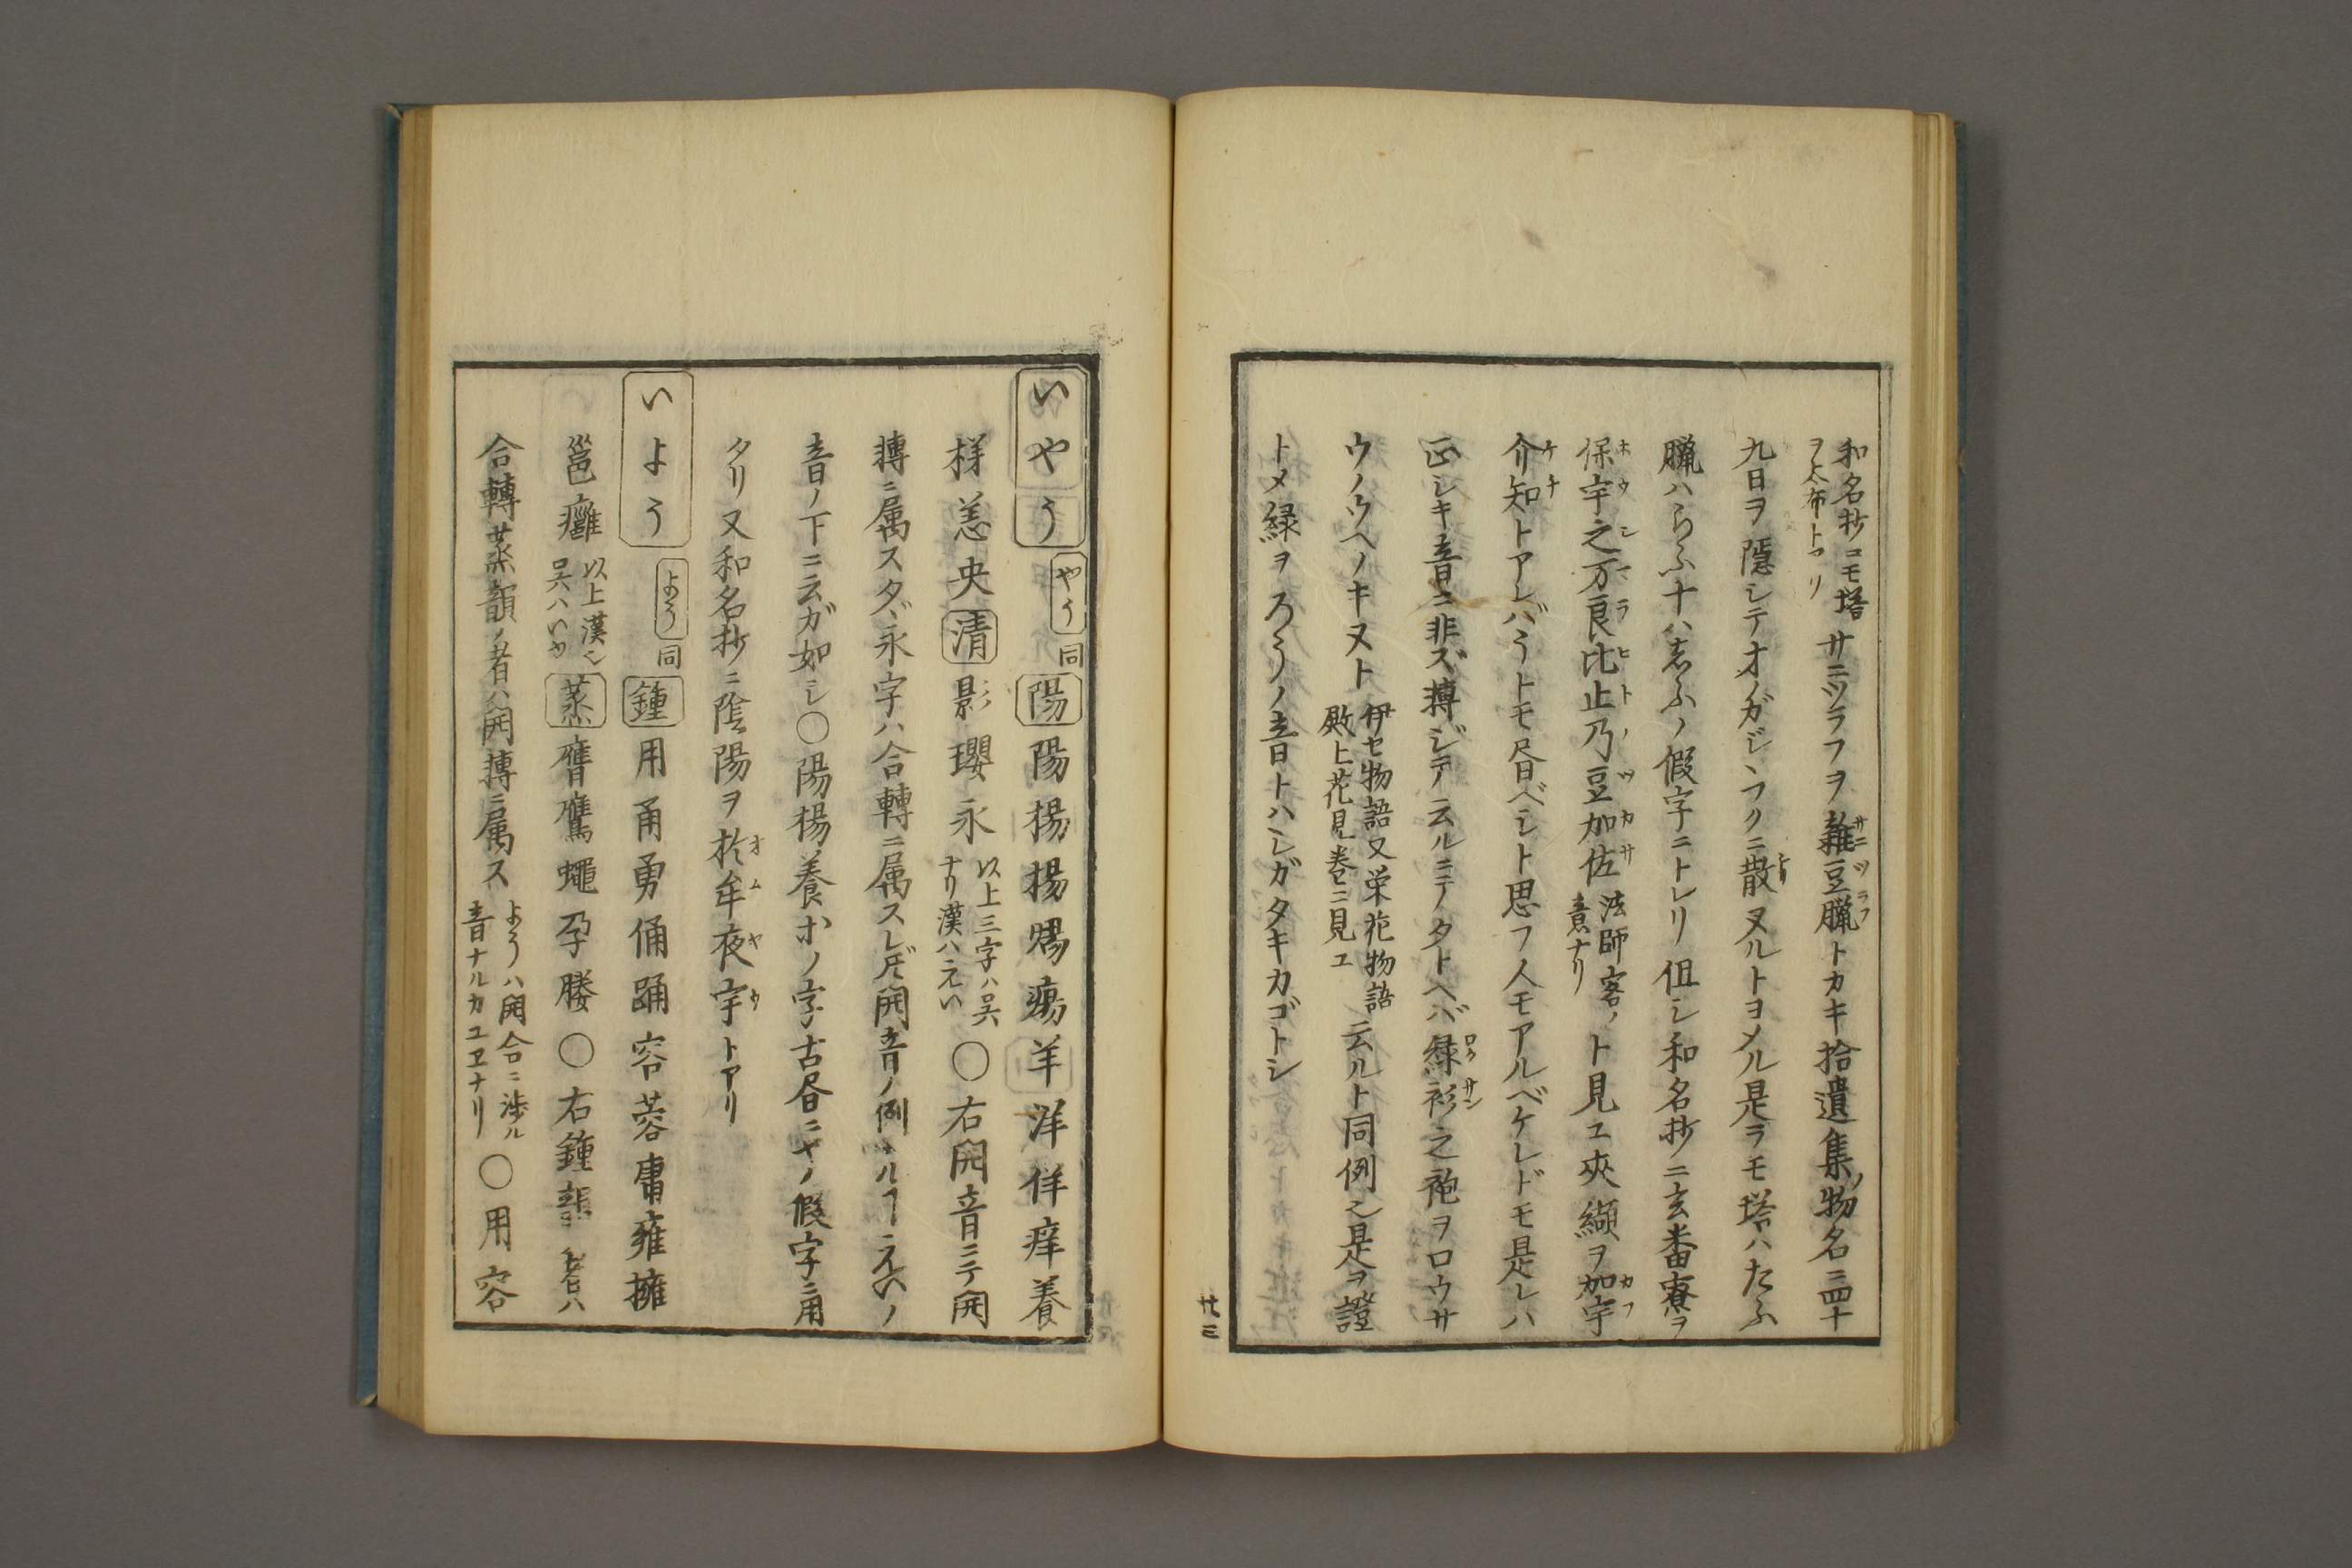 和名抄コモ塔ヲ太布トアリ サニツラフヲ雜豆臘トカキ拾遺集ノ物名ニ四十
九日ヲ隠シテオノガジヽフクニ散ヌルトヨメル是ラモ塔ハたふ
臘ハらふ十ハ志ふノ假字ニトレリ但シ和名抄ニ玄番寮ヲ
保宇之万良比止乃豆加佐 法師客ノ意ナリ ト見ユ夾纈ヲ加宇
介知トアレバうトモ昌ベシト思フ人モアルベケレドモ是レハ
正シキ音ニ非ズ轉ジテ云ルニテタトヘバ緑衫之袍ヲロウサ
ウノウヘノキヌト 伊セ物語又栄花物語殿上花見巻ニ見ユ 云ルト同例也是ヲ證
トメ緑ヲろうノ音トハシガタキカゴトシ
廿三
いやう やう同 陽 陽揚楊煬瘍羊洋佯痒養
様恙央 清 影瓔永 以上三字ハ呉ナリ漢ハえい 〇右開音ニテ開
轉ニ属スタヾ永字ハ合轉ニ属スレド開音ノ例ナルヿえいノ
音ノ下ニ云ガ如シ〇陽楊養ホノ字古昌ニヤノ假字ニ用
タリ又和名抄ニ陰陽ヲ於牟夜宇トアリ
いよう よう同 鍾 用甬勇俑踊容蓉庸雍擁
邕癰 以上漢也呉ハいゆ 蒸 膺鷹蠅孕媵〇右鍾韻ノ者ハ
合轉蒸韻ノ者ハ開轉ニ属ス ようハ開合ニ渉ル音ナルカユヱナリ 〇用容